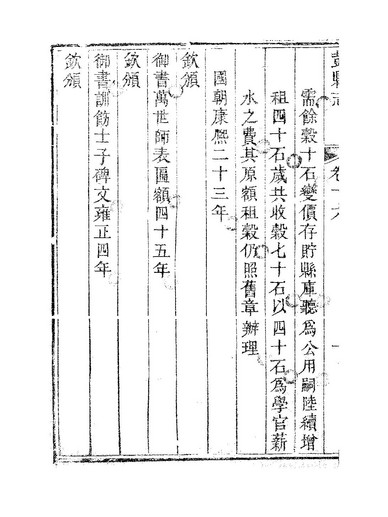 彭縣志
卷十六
需餘穀十石變價存貯縣庫聽爲公用嗣陸續增
租四十石歲共收穀七十石以四十石爲學官薪
水之費其原額租穀仍照舊章辦理
國朝康熙二十三年
欽頒
御書萬世師表匾額四十五年
欽頒
御書訓飭士子碑文雍正四年
欽頒